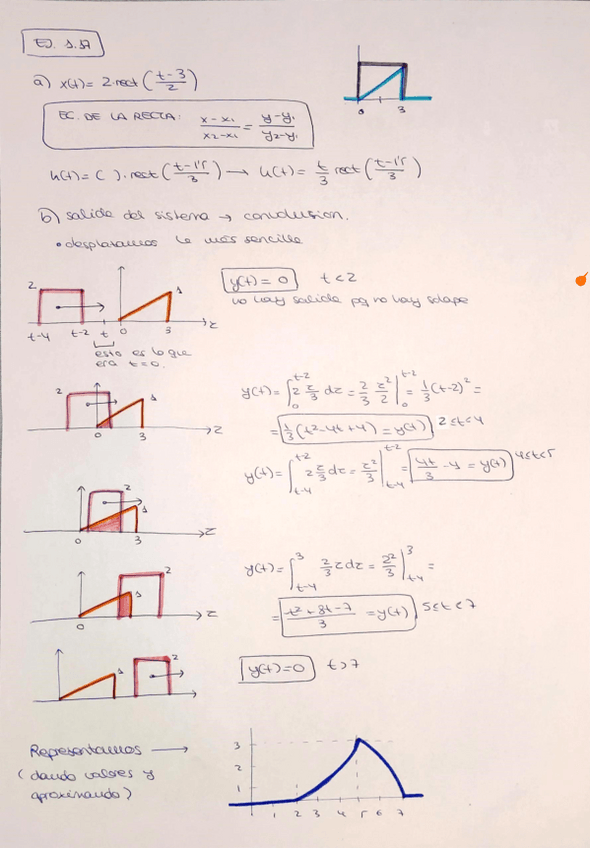 EJ. 1.17
a) x(t) = 2·rect(t-3/2)
0 3
EC. DE LA RECTA: x-x1/x2-x1 = y-y1/y2-y1
h(t) = ( )·rect(t-1'5/3) → h(t) = t/3 rect(t-1'5/3)
b) salida del sistema → convolusion.
• desplazamos la más sencilla
y(t) = 0 t<2
no hay salida pq no hay solape
2 1
t-4 t-2 t 0 3 τ
esto es lo que
era t=0.
2 1
0 3 τ
y(t) = ∫₀^(t-2) 2 τ/3 dτ = 2/3 τ²/2 |₀^(t-2) = 1/3 (t-2)² =
= 1/3 (t²-4t+4) = y(t) 2≤t<4
y(t) = ∫_(t-4)^(t-2) 2 τ/3 dτ = τ²/3 |_(t-4)^(t-2) = 4t/3 - 4 = y(t) 4≤t<5
2 1
0 3 τ
y(t) = ∫_(t-4)^3 2/3 τ dτ = τ²/3 |_(t-4)^3 =
= -t²+8t-7/3 = y(t) 5≤t<7
2 1
0 τ
y(t) = 0 t>7
1 2
Representamos →
(dando valores y
aproximando)
3
2
1
1 2 3 4 5 6 7